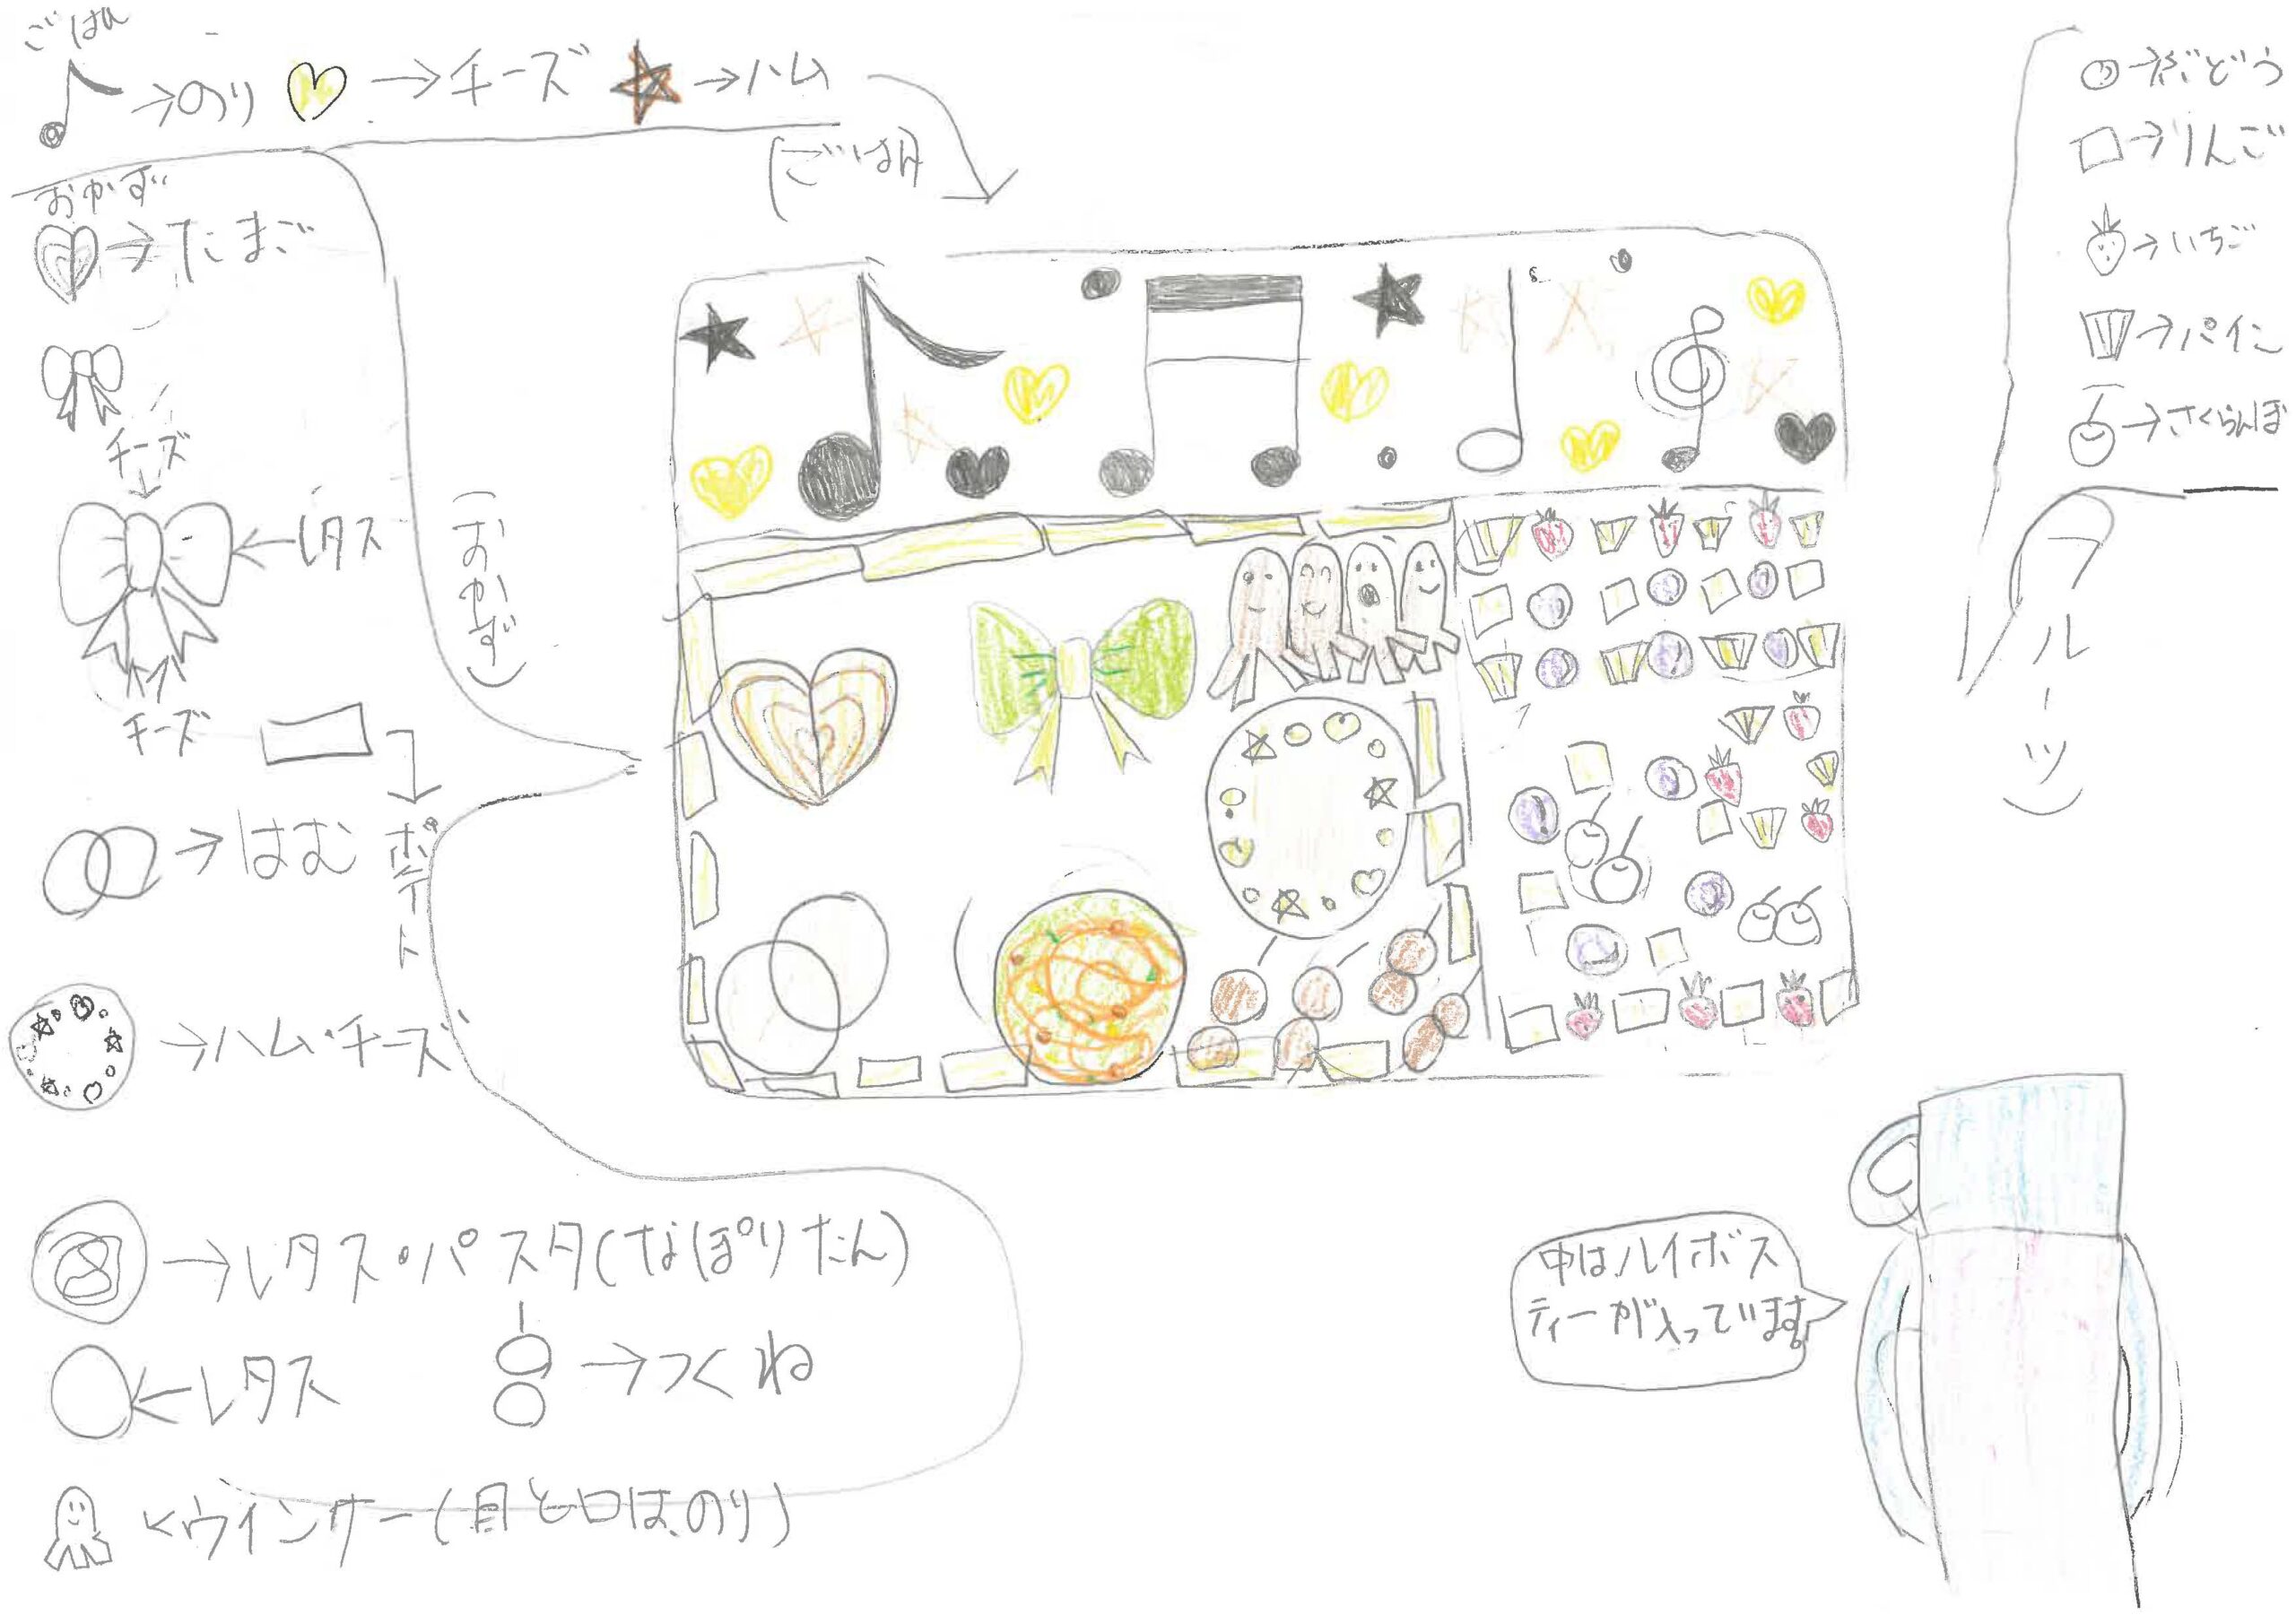 ごはん
→のり →チーズ →ハム
(ごはん)
おかず
→たまご
チーズ
←レタス
チーズ
ポテト
→はむ
→ハム・チーズ
→レタス・パスタ(なぽりたん)
←レタス
→つくね
←ウインナー(目と口は、のり)
(おかず)
→ぶどう
→りんご
→いちご
→パイン
→さくらんぼ
(フルーツ)
中はルイボス
ティーが入っています。